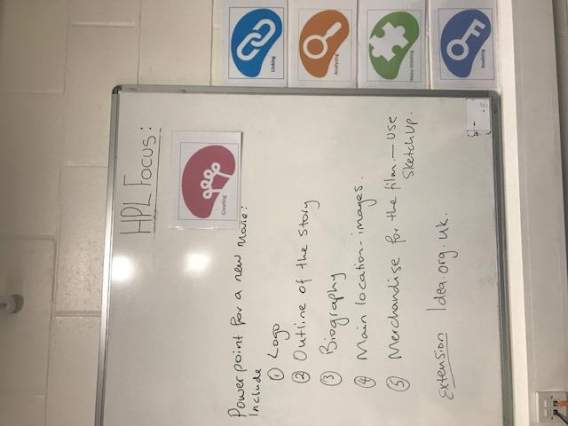 HPL FOCUS:
Creating
Powerpoint for a new movie:
Include
① Logo
② Outline of the story
③ Biography
④ Main location - images.
⑤ Merchandise for the film. — use
Sketchup.
Extension Idea.org.uk.
Linking
Analysing